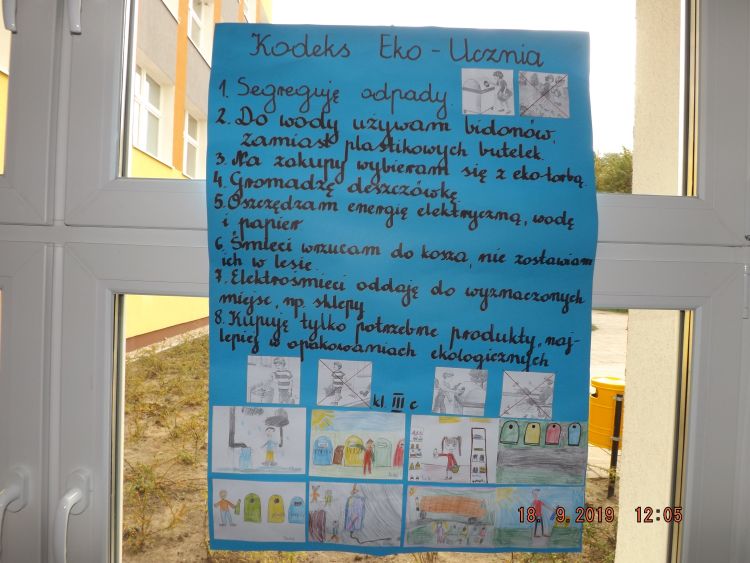 Kodeks Eko-Ucznia
1. Segreguję odpady.
2. Do wody używam bidonów,
zamiast plastikowych butelek.
3. Na zakupy wybieram się z eko-torbą.
4. Gromadzę deszczówkę.
5. Oszczędzam energię elektryczną, wodę
i papier
6. Śmieci wrzucam do kosza, nie zostawiam
ich w lesie.
7. Elektrośmieci oddaję do wyznaczonych
miejsc, np. sklepy
8. Kupuję tylko potrzebne produkty, naj-
lepiej w opakowaniach ekologicznych
kl. III c
18. 9.2019 12:05